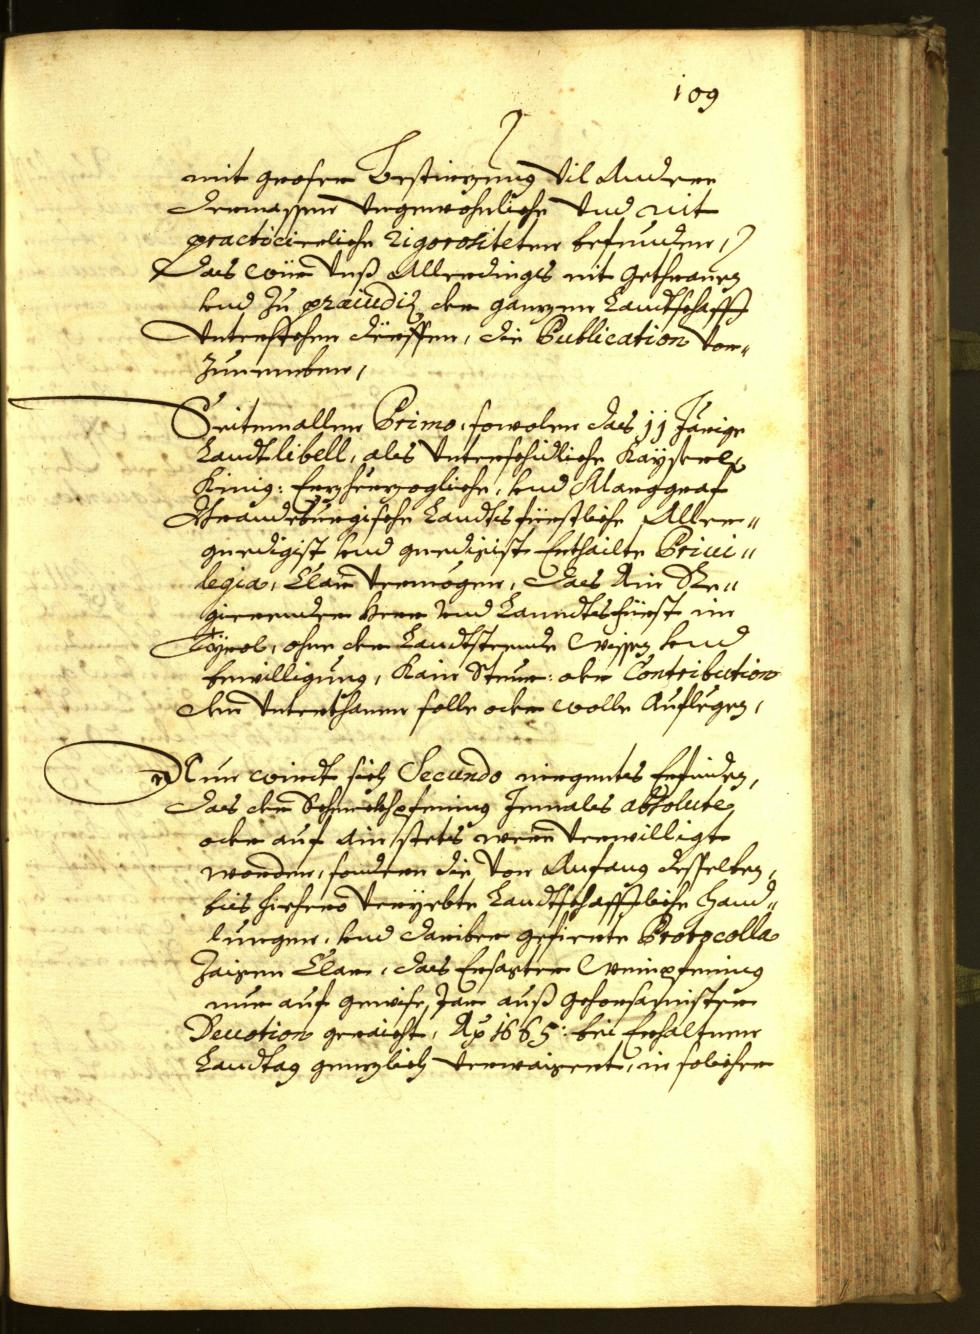 109
mit grosser Bestirzung vil Andere
dermassen vngewohnliche vnd nit
practicierliche rigorositeten befunden,
Das wür vnß Allerdings nit getrauen
vnd zu præiudiz der ganzen Landtschafft
Vnterstehen dörffen, die Publication vor-
zunemben,
Seitemallen Primo, sowolen das 11 Järige
Landtlibell, als vnterschidliche Kayserl:
Künig: Erzherzogliche, vnd Marggraf
Brandeburgische Landtsfürstliche Aller-
gnedigist vnd gnedigist Erthailte Priui-
legia, Clar vermögen, Das Ain Re-
gierender Herr vnd Lanndtsfürst in
Tÿrol, ohne der Landtstende wissen vnd
bewilligung, Kain Steur: oder Contribution
den Vnterthanen solle oder wolle Auflegen,
Nun wirdt sich Secundo niergents Erfinden,
das der Schreckhpfening Jemales absolute,
oder auf ain stets weren verwilligt
worden, sondern die von Anfang desselben,
biis hiehero veryebte Landtschafftliche Hand-
lungen, vnd dariber gefierte Protocolla
Zaigen Clar, das Ersagter Weinpfening
nur auf gewise Jar auß gehorsamister
Deuotion geraicht, Aō 1665: bei Erhaltnem
Landtag genzlich verwaigert, in solicher